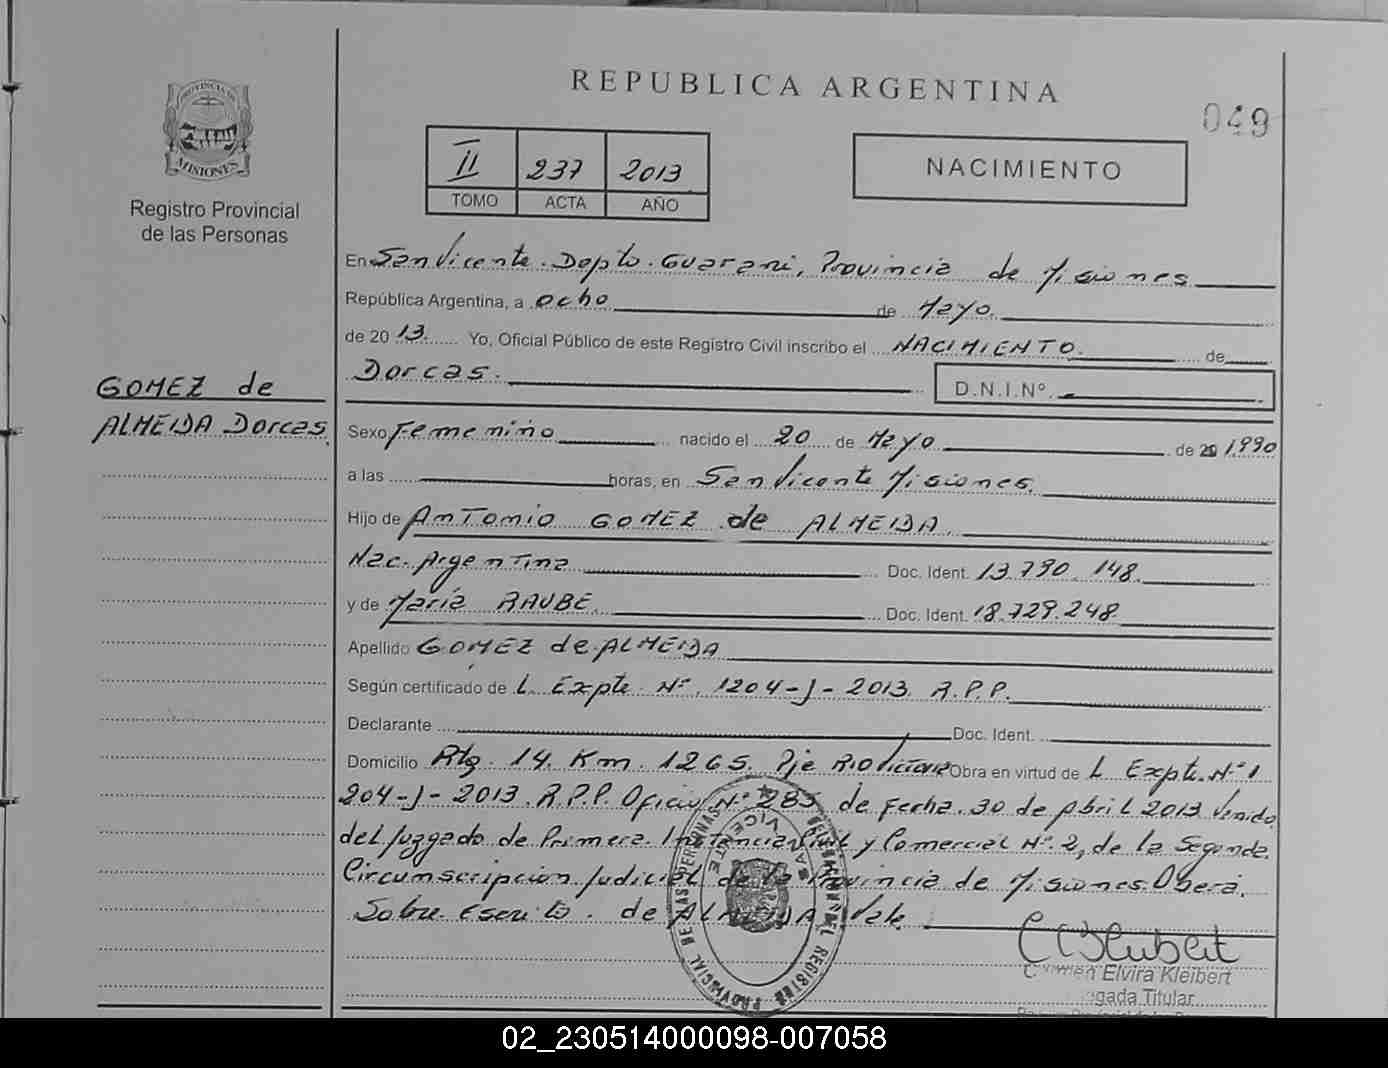 REPUBLICA ARGENTINA
049
PROVINCIA DE
MISIONES
Registro Provincial
de las Personas
II 237 2013
TOMO ACTA AÑO
NACIMIENTO
En San Vicente. Depto. Guarani, Provincia de Misiones
República Argentina, a ocho de Mayo
de 2013 Yo, Oficial Público de este Registro Civil inscribo el NACIMIENTO. de
Dorcas. D.N.I.Nº.
GOMEZ de
ALMEIDA Dorcas.
Sexo Femenino nacido el 20 de Mayo de 20 1990
a las horas, en San Vicente Misiones.
Hijo de ANTONIO GOMEZ de ALMEIDA.
Nac. Argentina Doc. Ident. 13.790.148.
y de María RAUBE. Doc. Ident. 18.729.248.
Apellido GOMEZ de ALMEIDA
Según certificado de L. Expte. Nº. 1204-J-2013. R.P.P.
Declarante Doc. Ident.
Domicilio Rta. 14. Km. 1265. Pje Obra en virtud de L Expte. Nº 1
204-J-2013. R.P.P. Oficio Nº 285 de Fecha. 30 de Abril 2013 Venido
del Juzgado de Primera Instancia Civil y Comercial Nº. 2, de la Segunda
Circunscripcion Judicial de la Provincia de Misiones. Oberá.
Sobre Escrito. de ALMEIDA Vale.
DELEGACION DEL REGISTRO PROVINCIAL DE LAS PERSONAS
SAN VICENTE
Elvira Kleibert
gada Titular
02_230514000098-007058